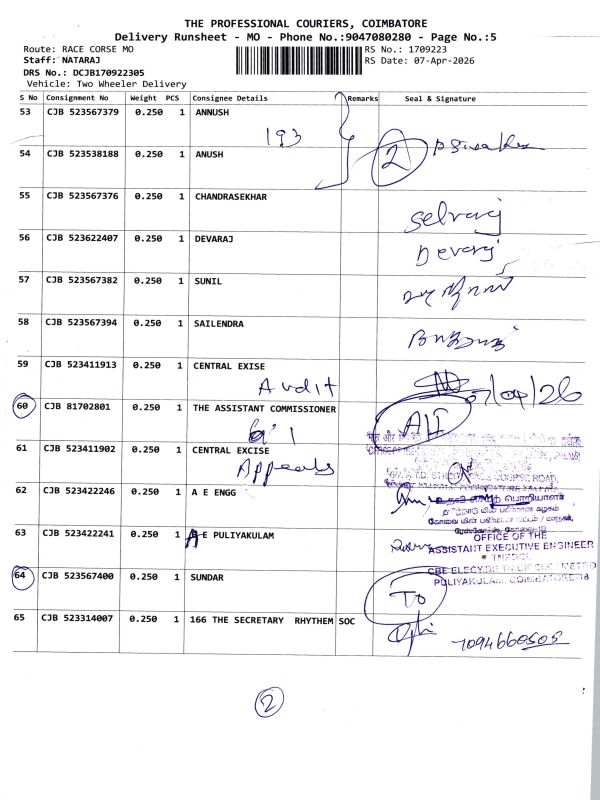 THE PROFESSIONAL COURIERS, COIMBATORE
Delivery Runsheet - MO - Phone No.:9047080280 - Page No.:5
Route: RACE CORSE MO
RS No.: 1709223
Staff: NATARAJ
RS Date: 07-Apr-2026
DRS No.: DCJB170922305
Vehicle: Two Wheeler Delivery
S No Consignment No Weight PCS Consignee Details Remarks Seal & Signature
53 CJB 523567379 0.250 1 ANNUSH
193
54 CJB 523538188 0.250 1 ANUSH
2
55 CJB 523567376 0.250 1 CHANDRASEKHAR
Selvaraj
56 CJB 523622407 0.250 1 DEVARAJ
Devaraj
57 CJB 523567382 0.250 1 SUNIL
58 CJB 523567394 0.250 1 SAILENDRA
59 CJB 523411913 0.250 1 CENTRAL EXISE
Audit
07/04/26
60 CJB 81702801 0.250 1 THE ASSISTANT COMMISSIONER
61 CJB 523411902 0.250 1 CENTRAL EXCISE
Appeals
COURSE ROAD,
62 CJB 523422246 0.250 1 A E ENGG
உதவி பொறியாளர்
63 CJB 523422241 0.250 1 A E PULIYAKULAM
OFFICE OF THE
ASSISTANT EXECUTIVE ENGINEER
TNPDCL
METRO
PULIYAKULAM, COIMBATORE-18
64 CJB 523567400 0.250 1 SUNDAR
TO
65 CJB 523314007 0.250 1 166 THE SECRETARY RHYTHEM SOC
7094660505
2